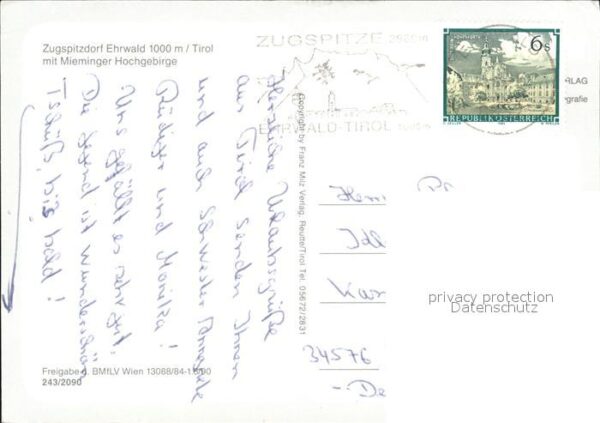 Zugspitzdorf Ehrwald 1000 m / Tirol
mit Mieminger Hochgebirge
ZUGSPITZE 2966m
EHRWALD-TIROL 1000m
6s
REPUBLIK ÖSTERREICH
RLAG
grafie
Herzliche Urlaubsgrüße
aus Tirol senden Ihnen
und auch Schwester Annegrete
Rüdiger und Monika!
Uns gefällt es sehr gut,
Die Gegend ist wunderschön
Tschüß, bis bald!
Copyright by Franz Milz Verlag, Reutte/Tirol Tel. 05672/2831
Kas
34576
- De
privacy protection
Datenschutz
Freigabe d. BMfLV Wien 13088/84-1.6/90
243/2090